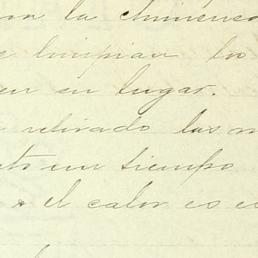 con la chimenea
se limpian lo
en su lugar.
retirado las m
un tiempo
el calor es e